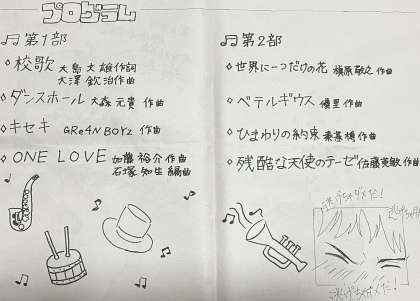 プログラム
♫第1部
◇校歌 大島 大雄作詞
大澤 欽治作曲
◇ダンスホール 大森元貴 作曲
◇キセキ GRe4N BOYZ 作曲
◇ONE LOVE 加藤裕介作曲
石塚知生編曲
♫第2部
◇世界に一つだけの花 槇原敬之 作曲
◇ベテルギウス 優里 作曲
◇ひまわりの約束 秦基博 作曲
◇残酷な天使のテーゼ 佐藤英敏 作曲
逃げちゃダメだ!
逃げちゃダメだ!